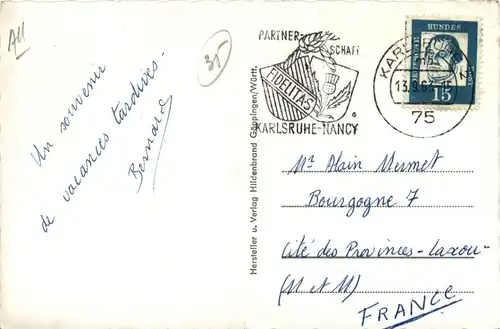 All
35
Un souvenir
de vacances tardives.
Bernard
Hersteller u. Verlag Hildenbrand Göppingen/Württ.
PARTNER
SCHAFT
FIDELITAS
KARLSRUHE-NANCY
KARLSRUHE
13.9.63
75
BUNDES
POST
15
Mr Alain Mermet
Bourgogne 7
Cité des Provinces-Laxou-
(M et M)
FRANCE